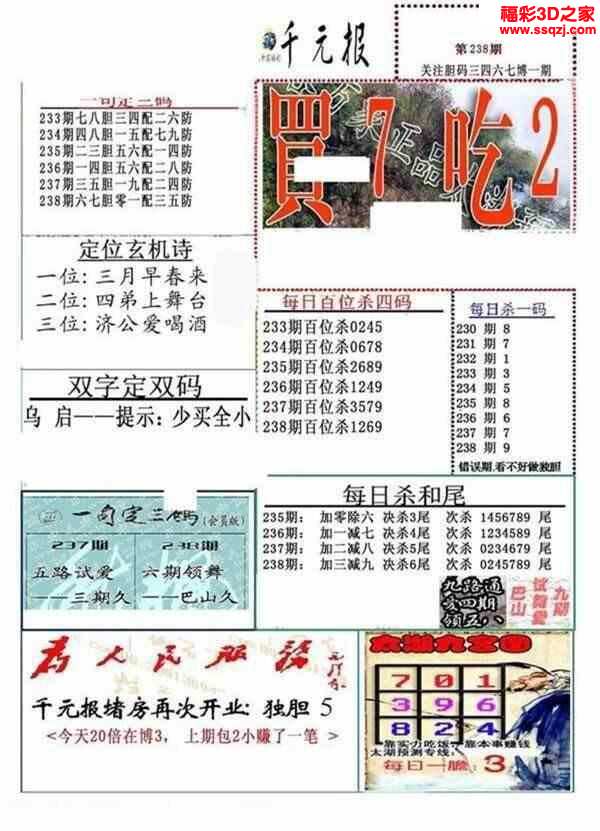 福彩3D之家
www.ssqzj.com
千元报
第238期
关注胆码三四六七博一期
一句定三码
233期七八胆三四配二六防
234期四八胆一五配七九防
235期二三胆五六配一四防
236期一四胆五六配二八防
237期三五胆一九配二四防
238期六七胆零一配三五防
買 7 吃 2
定位玄机诗
一位: 三月早春来
二位: 四弟上舞台
三位: 济公爱喝酒
每日百位杀四码
233期百位杀0245
234期百位杀0678
235期百位杀2689
236期百位杀1249
237期百位杀3579
238期百位杀1269
每日杀一码
230 期 8
231 期 7
232 期 1
233 期 3
234 期 5
235 期 8
236 期 6
237 期 7
238 期 9
错误期,看不好做独胆
双字定双码
乌 启——提示: 少买全小
一句定三码(会员版)
237期
五路试爱
——三期久
238期
六期领舞
——巴山久
每日杀和尾
235期: 加零除六 决杀3尾 次杀 1456789 尾
236期: 加一减七 决杀4尾 次杀 1234589 尾
237期: 加二减八 决杀5尾 次杀 0234679 尾
238期: 加三减九 决杀6尾 次杀 0245789 尾
九路通
亥四期
领五八
九期
试舞爱
巴山
为人民服务
千元报堵房再次开业: 独胆 5
<今天20倍在博3, 上期包2小赚了一笔 >
太湖九宫图
7 0 1
3 9 6
8 2 4
靠实力吃饭 靠本事赚钱
太湖预测专线:
每日一胆: 3